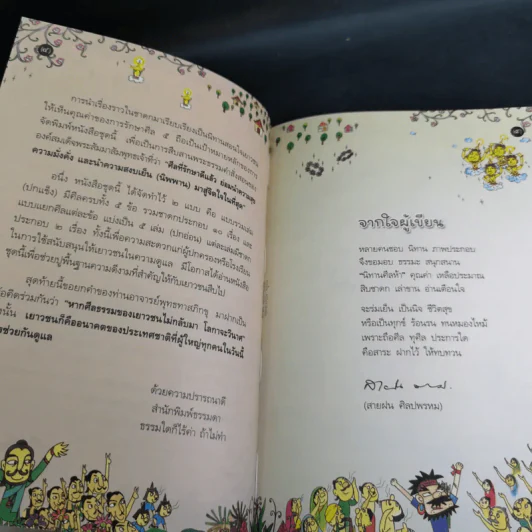 การนำเรื่องราวในชาดกมาเรียบเรียงเป็นนิทานสอนใจเยาวชน
ให้เห็นคุณค่าของการรักษาศีล ๕ ถือเป็นเป้าหมายหลักของการ
จัดพิมพ์หนังสือชุดนี้ เพื่อเป็นการสืบสานพระธรรมคำสั่งสอนของ
องค์สมเด็จพระสัมมาสัมพุทธเจ้าที่ว่า "ศีลที่รักษาดีแล้ว ย่อมนำความสุข
ความมั่งคั่ง และนำความสงบเย็น (นิพพาน) มาสู่จิตใจในที่สุด"
อนึ่ง หนังสือชุดนี้ ได้จัดทำไว้ ๒ แบบ คือ แบบรวมเล่ม
(ปกแข็ง) มีศีลครบทั้ง ๕ ข้อ รวมชาดกประกอบ ๑๐ เรื่อง และ
แบบแยกศีลแต่ละข้อ แบ่งเป็น ๕ เล่ม (ปกอ่อน) แต่ละเล่มมีชาดก
ประกอบ ๒ เรื่อง ทั้งนี้เพื่อความสะดวกแก่ผู้ปกครองหรือโรงเรียน
ในการใช้สนับสนุนให้เยาวชนในความดูแล มีโอกาสได้อ่านหนังสือ
ชุดนี้เพื่อช่วยปูพื้นฐานความดีงามที่สำคัญให้กับเยาวชนสืบไป
สุดท้ายนี้ขอยกคำของท่านอาจารย์พุทธทาสภิกขุ มาฝากเป็น
ข้อคิดร่วมกันว่า "หากศีลธรรมของเยาวชนไม่กลับมา โลกาจะวินาศ"
นั้น เยาวชนก็คืออนาคตของประเทศชาติที่ผู้ใหญ่ทุกคนในวันนี้
ช่วยกันดูแล
ด้วยความปรารถนาดี
สำนักพิมพ์ธรรมดา
ธรรมใดก็ไร้ค่า ถ้าไม่ทำ
จากใจผู้เขียน
หลายคนชอบ นิทาน ภาพประกอบ
จึงขอมอบ ธรรมะ สนุกสนาน
"นิทานศีลห้า" คุณค่า เหลือประมาณ
สิบชาดก เล่าขาน อ่านเตือนใจ
จะร่มเย็น เป็นนิจ ชีวิตสุข
หรือเป็นทุกข์ ร้อนรน ทนหมองไหม้
เพราะถือศีล ทุศีล ประการใด
คือสาระ ฝากไว้ ให้ทบทวน
(สายฝน ศิลปพรหม)